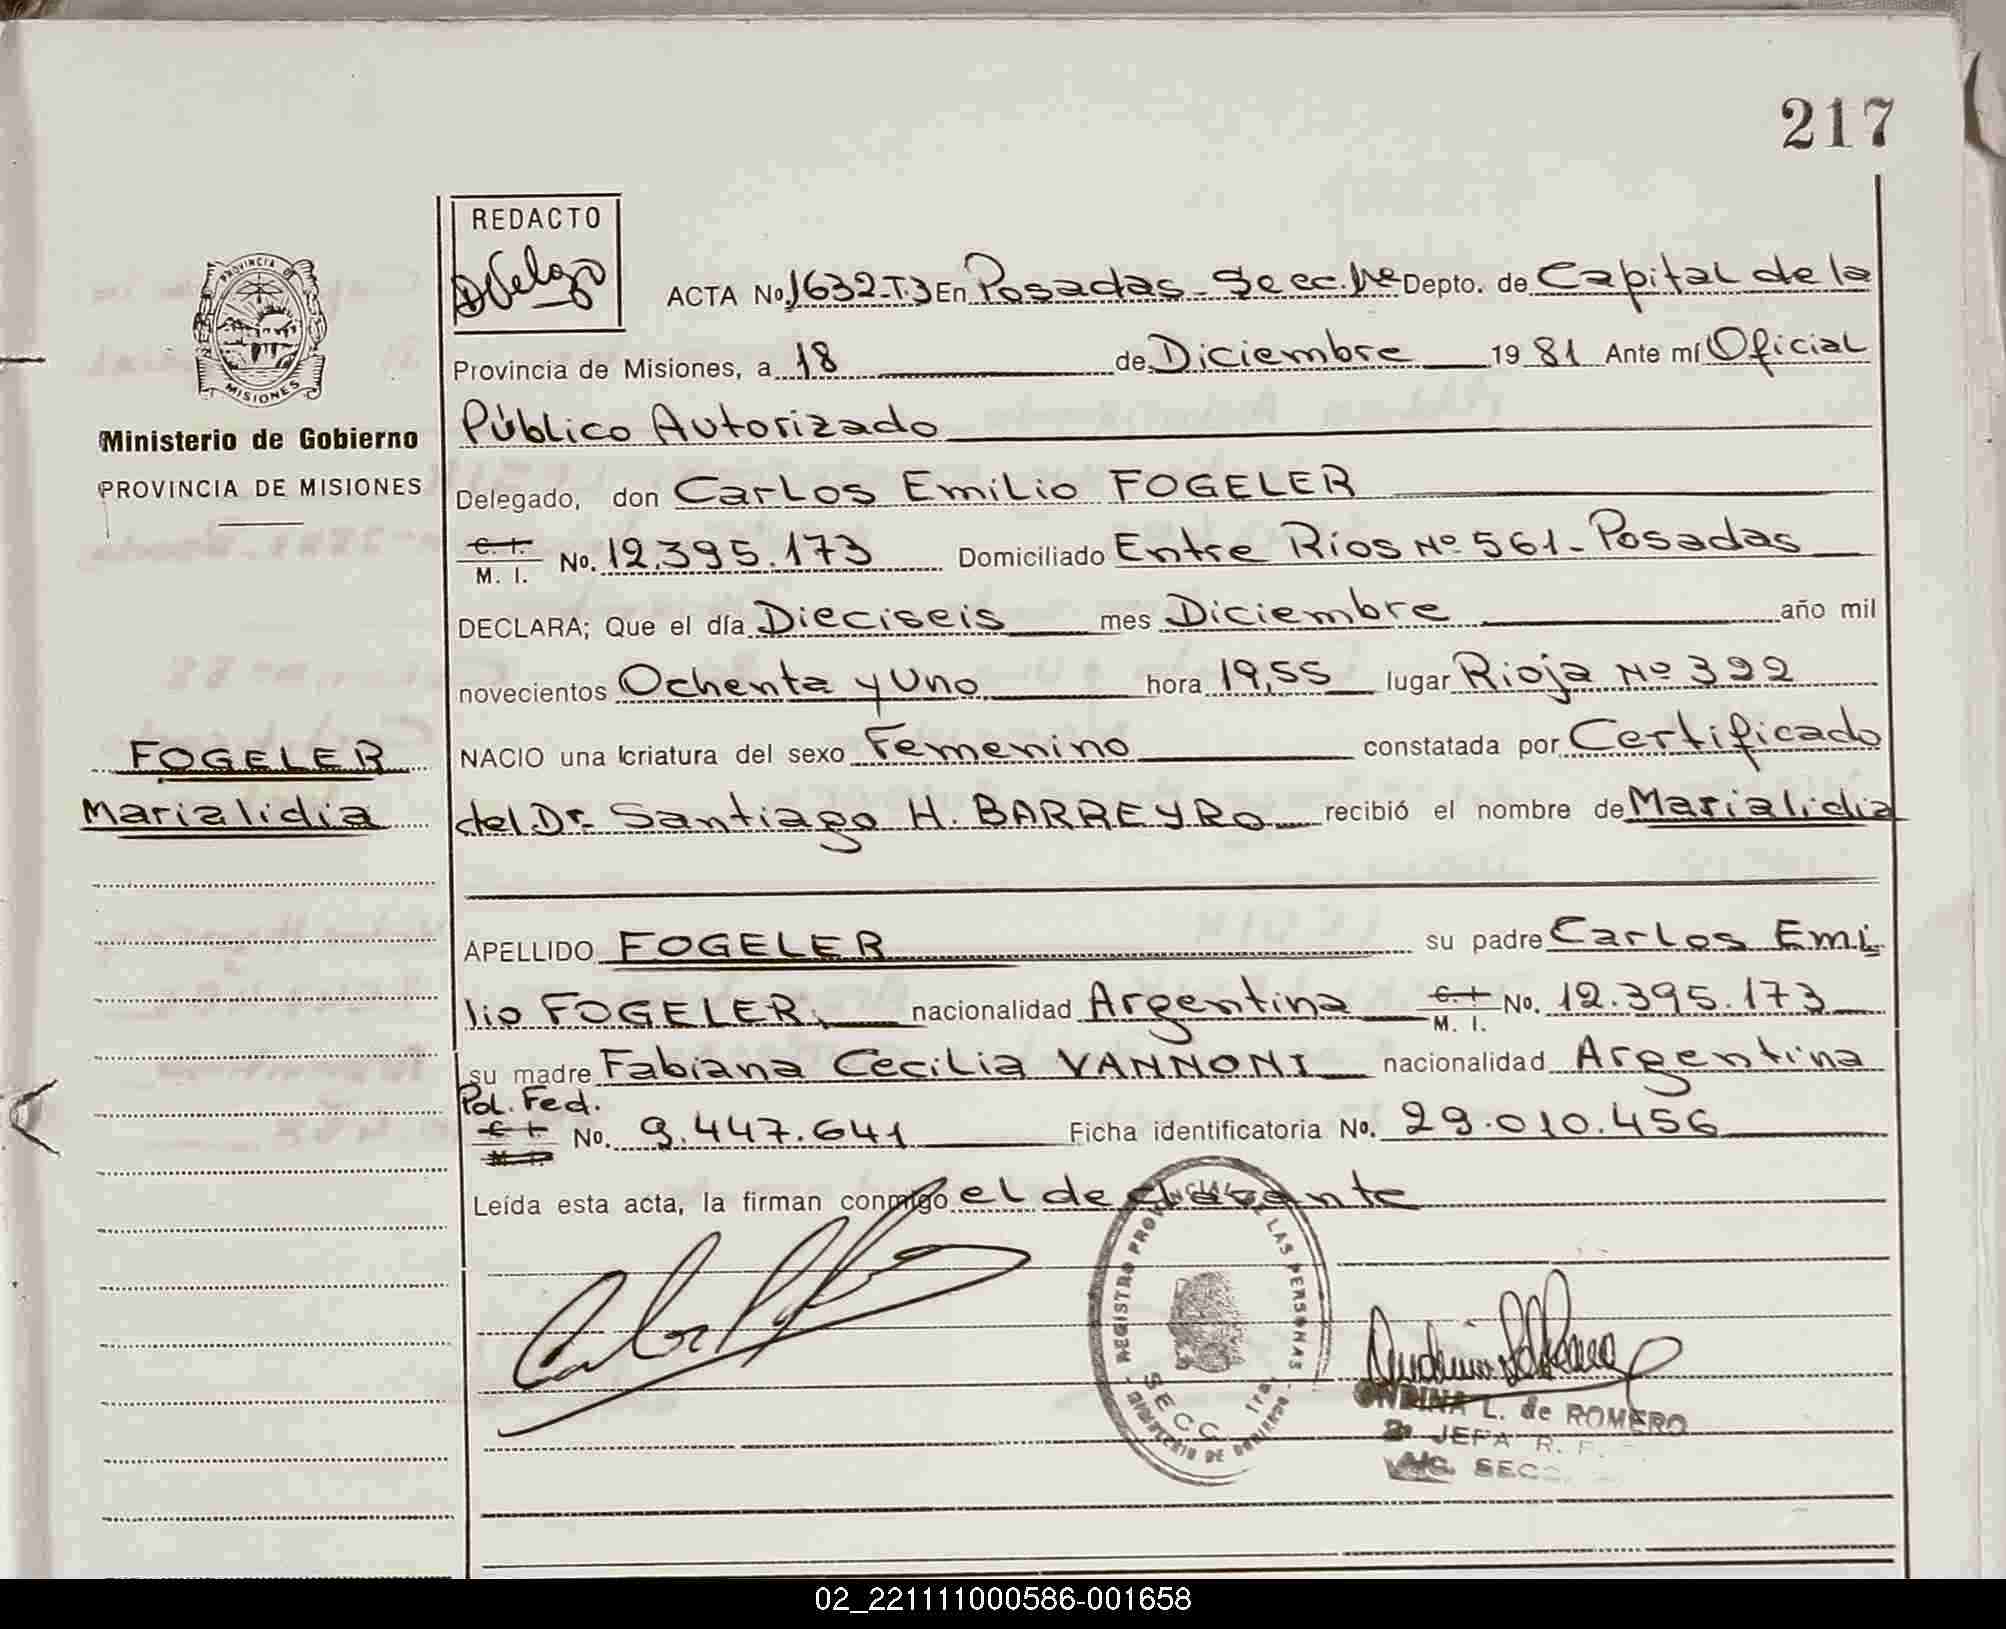 217
REDACTO
PROVINCIA DE
MISIONES
ACTA No. 1632-T.3 En Posadas - Secc. 1ra Depto. de Capital de la
Provincia de Misiones, a 18 de Diciembre 19 81 Ante mí Oficial
Público Autorizado
Ministerio de Gobierno
PROVINCIA DE MISIONES
Delegado, don Carlos Emilio FOGELER
C. I.
M. I. No. 12.395.173 Domiciliado Entre Ríos Nº 561 - Posadas
DECLARA; Que el día Dieciseis mes Diciembre año mil
novecientos Ochenta y Uno hora 19,55 lugar Rioja Nº 392
NACIO una criatura del sexo Femenino constatada por Certificado
FOGELER
Marialidia
del Dr. Santiago H. BARREYRO recibió el nombre de Marialidia
APELLIDO FOGELER su padre Carlos Emi
lio FOGELER. nacionalidad Argentina C. I. M. I. No. 12.395.173
su madre Fabiana Cecilia VANNONI nacionalidad Argentina
Pol. Fed.
C. I. M. I. No. 9.447.641 Ficha identificatoria No. 29.010.456
Leída esta acta, la firman conmigo el declarante
REGISTRO PROVINCIAL DE LAS PERSONAS
SECC. 1ra.
MINISTERIO DE GOBIERNO
ONDINA L. de ROMERO
JEFA R. P.
SECC.
02_221111000586-001658